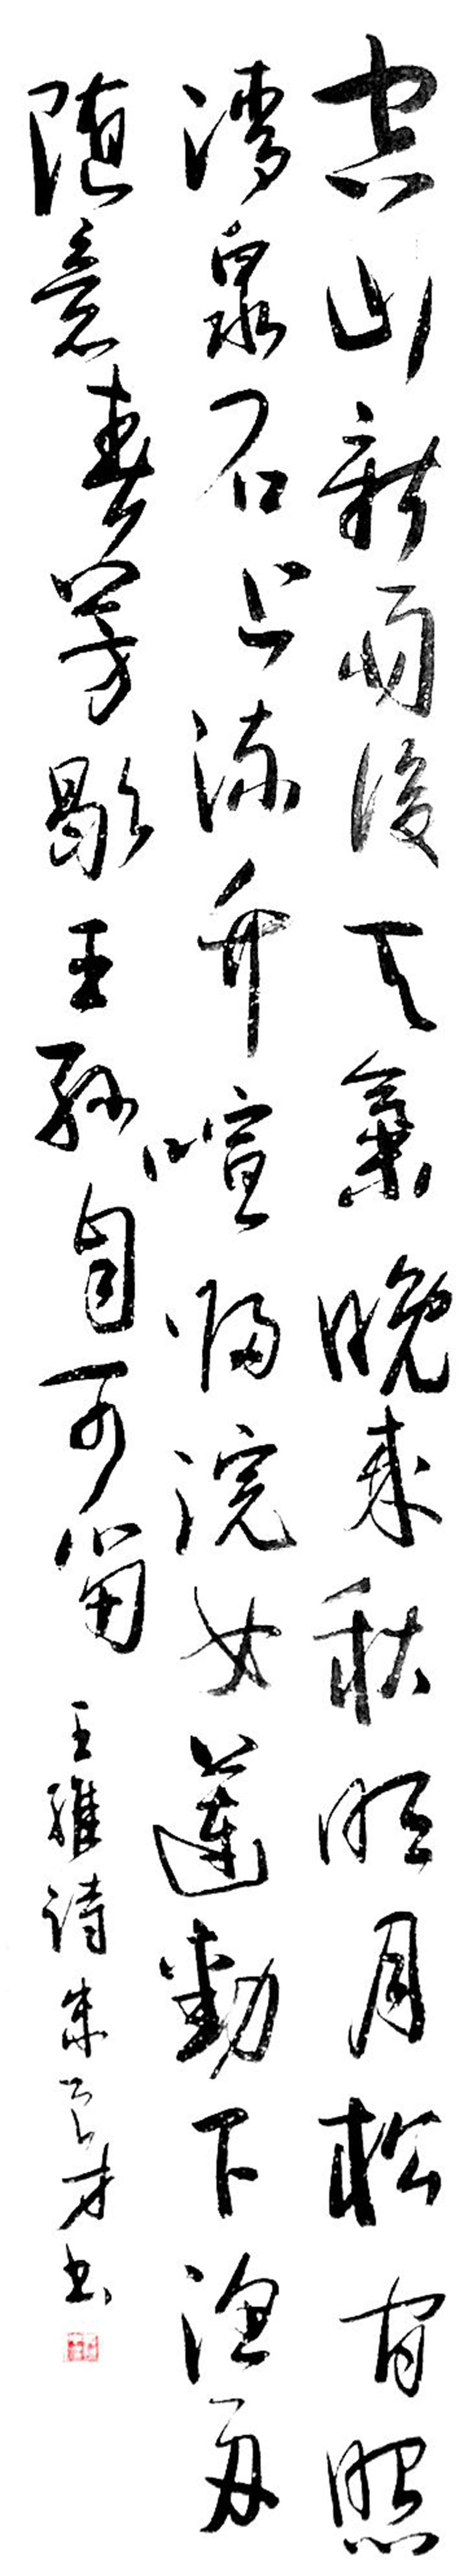 空山新雨後天氣晚来秋明月松间照
清泉石上流竹喧歸浣女蓮動下漁舟
随意春芳歇王孫自可留
王維诗朱才书